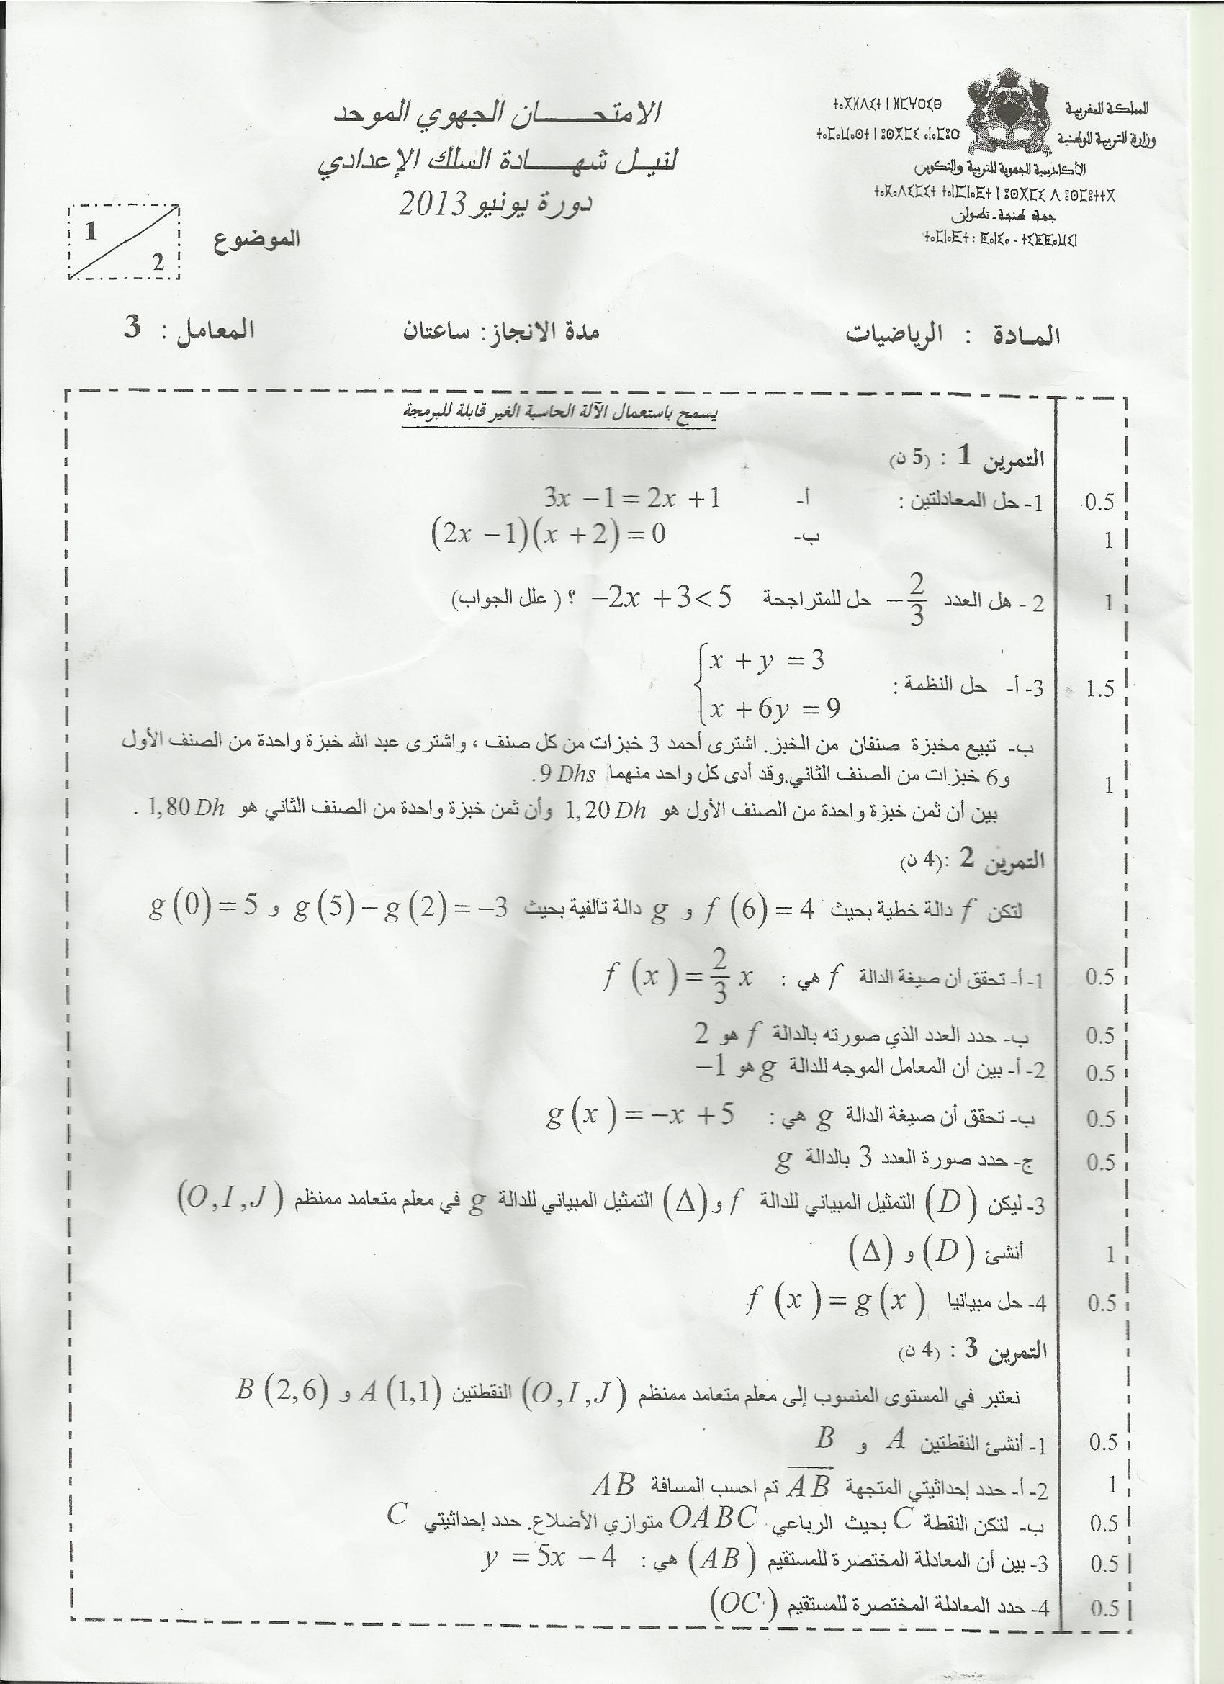 المملكة المغربية
وزارة التربية الوطنية
الأكاديمية الجهوية للتربية والتكوين
جهة طنجة - تطوان
الامتحـــــان الجهوي الموحد
لنيل شهـــادة السلك الإعدادي
دورة يونيو 2013
الموضوع
1
2
المـادة : الرياضيات
مدة الانجاز: ساعتان
المعامل : 3
يسمح باستعمال الآلة الحاسبة الغير قابلة للبرمجة
التمرين 1 : (5 ن)
1- حل المعادلتين : أ- 3x − 1 = 2x + 1 0.5
ب- (2x − 1)(x + 2) = 0 1
2 - هل العدد −2/3 حل للمتراجحة −2x + 3 < 5 ؟ ( علل الجواب) 1
3- أ- حل النظمة : { x + y = 3 1.5
x + 6y = 9
ب- تبيع مخبزة صنفان من الخبز. اشترى أحمد 3 خبزات من كل صنف ، واشترى عبد الله خبزة واحدة من الصنف الأول
و6 خبزات من الصنف الثاني.وقد أدى كل واحد منهما 9 Dhs . 1
بين أن ثمن خبزة واحدة من الصنف الأول هو 1,20 Dh وأن ثمن خبزة واحدة من الصنف الثاني هو 1,80 Dh .
التمرين 2 :(4 ن)
لتكن f دالة خطية بحيث f(6) = 4 و g دالة تآلفية بحيث g(5) − g(2) = −3 و g(0) = 5
1- أ- تحقق أن صيغة الدالة f هي : f(x) = 2/3 x 0.5
ب- حدد العدد الذي صورته بالدالة f هو 2 0.5
2- أ- بين أن المعامل الموجه للدالة g هو −1 0.5
ب- تحقق أن صيغة الدالة g هي : g(x) = −x + 5 0.5
ج- حدد صورة العدد 3 بالدالة g 0.5
3- ليكن (D) التمثيل المبياني للدالة f و (Δ) التمثيل المبياني للدالة g في معلم متعامد ممنظم (O,I,J)
أنشئ (D) و (Δ) 1
4- حل مبيانيا f(x) = g(x) 0.5
التمرين 3 : (4 ن)
نعتبر في المستوى المنسوب إلى معلم متعامد ممنظم (O,I,J) النقطتين A(1,1) و B(2,6)
1- أنشئ النقطتين A و B 0.5
2- أ- حدد إحداثيتي المتجهة AB ثم احسب المسافة AB 1
ب- لتكن النقطة C بحيث الرباعي OABC متوازي الأضلاع. حدد إحداثيتي C 0.5
3- بين أن المعادلة المختصرة للمستقيم (AB) هي : y = 5x − 4 0.5
4- حدد المعادلة المختصرة للمستقيم (OC) 0.5